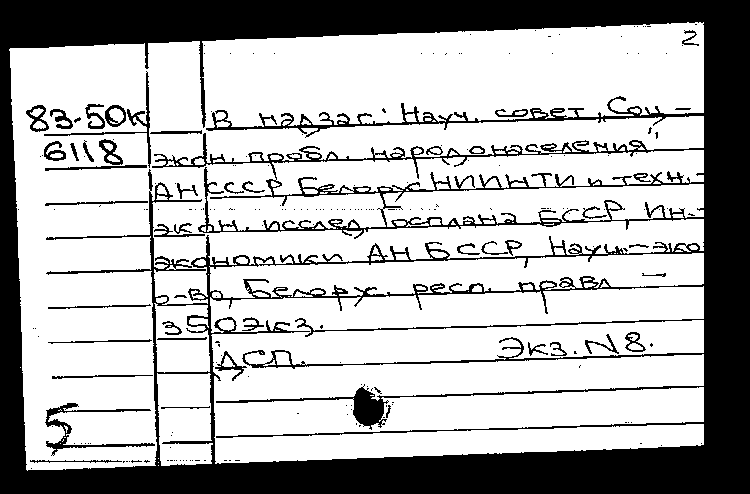 2
83-50к В надзаг.: Науч. совет „Соц-
6118 экон. пробл. народонаселения"
АН СССР, Белорус НИИНТИ и техн.-
экон. исслед. Госплана БССР, Ин-
экономики АН БССР, Науч.-эко
о-во, Белорус. респ. правл —
350экз.
ДСП. Экз. N8.
5